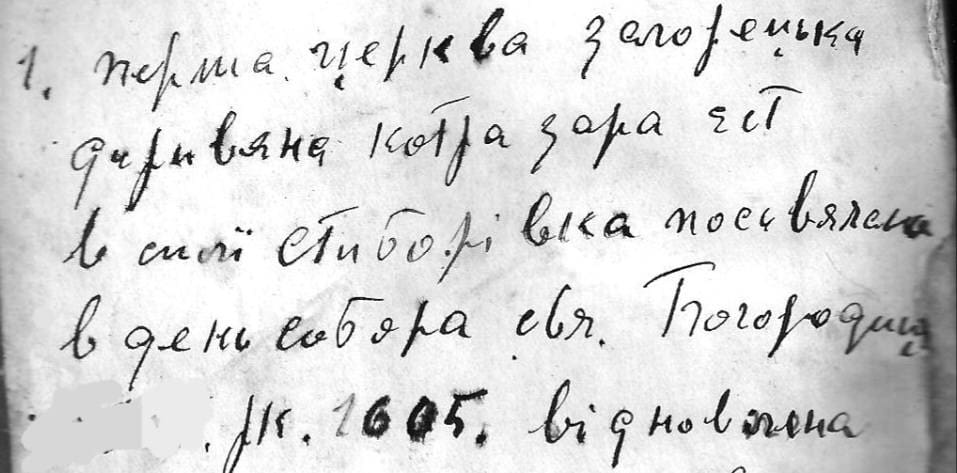 1. перша церква загорецька
диривяна котра зара єст
в силі Стиборівка посьвячена
в день собора свя. Богородиці
рк. 1605. відновлена